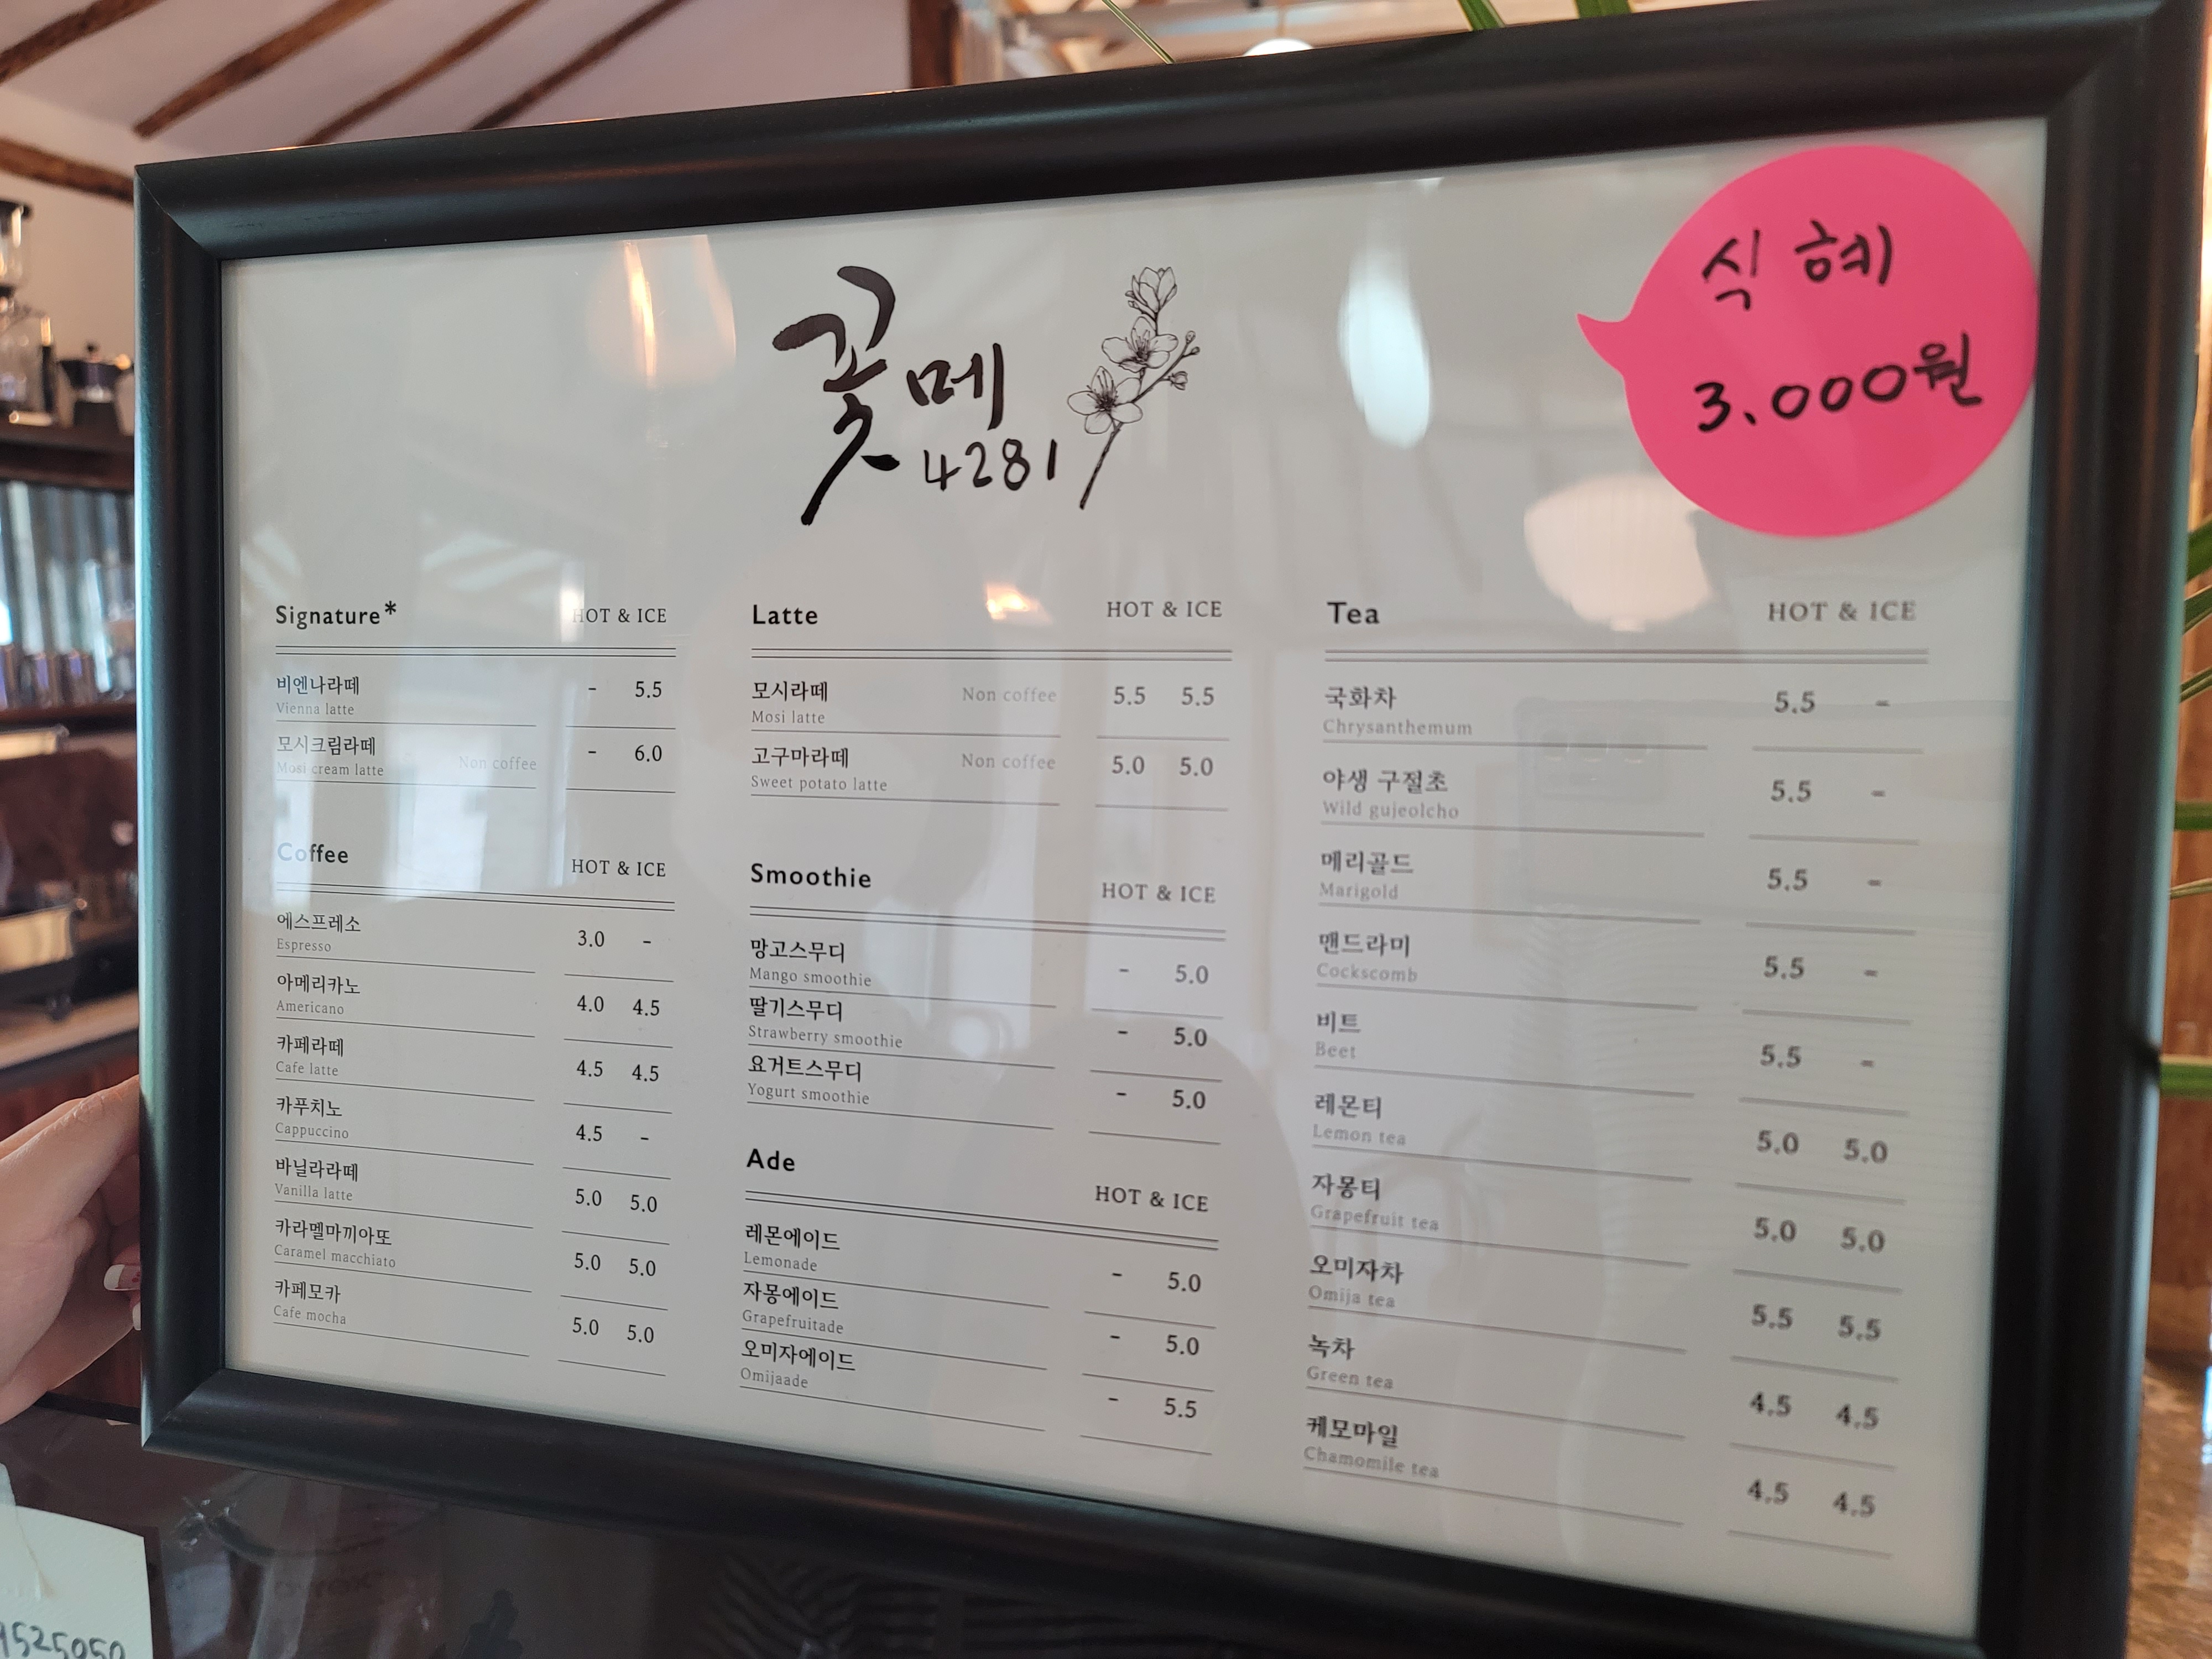 꽃메
4281
식혜
3.000원
Signature* HOT & ICE
비엔나라떼 - 5.5
Vienna latte
모시크림라떼 Non coffee - 6.0
Mosi cream latte
Coffee HOT & ICE
에스프레소 3.0 -
Espresso
아메리카노 4.0 4.5
Americano
카페라떼 4.5 4.5
Cafe latte
카푸치노 4.5 -
Cappuccino
바닐라라떼 5.0 5.0
Vanilla latte
카라멜마끼아또 5.0 5.0
Caramel macchiato
카페모카 5.0 5.0
Cafe mocha
Latte HOT & ICE
모시라떼 Non coffee 5.5 5.5
Mosi latte
고구마라떼 Non coffee 5.0 5.0
Sweet potato latte
Smoothie HOT & ICE
망고스무디 - 5.0
Mango smoothie
딸기스무디 - 5.0
Strawberry smoothie
요거트스무디 - 5.0
Yogurt smoothie
Ade HOT & ICE
레몬에이드 - 5.0
Lemonade
자몽에이드 - 5.0
Grapefruitade
오미자에이드 - 5.5
Omijaade
Tea HOT & ICE
국화차 5.5 -
Chrysanthemum
야생 구절초 5.5 -
Wild gujeolcho
메리골드 5.5 -
Marigold
맨드라미 5.5 -
Cockscomb
비트 5.5 -
Beet
레몬티 5.0 5.0
Lemon tea
자몽티 5.0 5.0
Grapefruit tea
오미자차 5.5 5.5
Omija tea
녹차 4.5 4.5
Green tea
케모마일 4.5 4.5
Chamomile tea